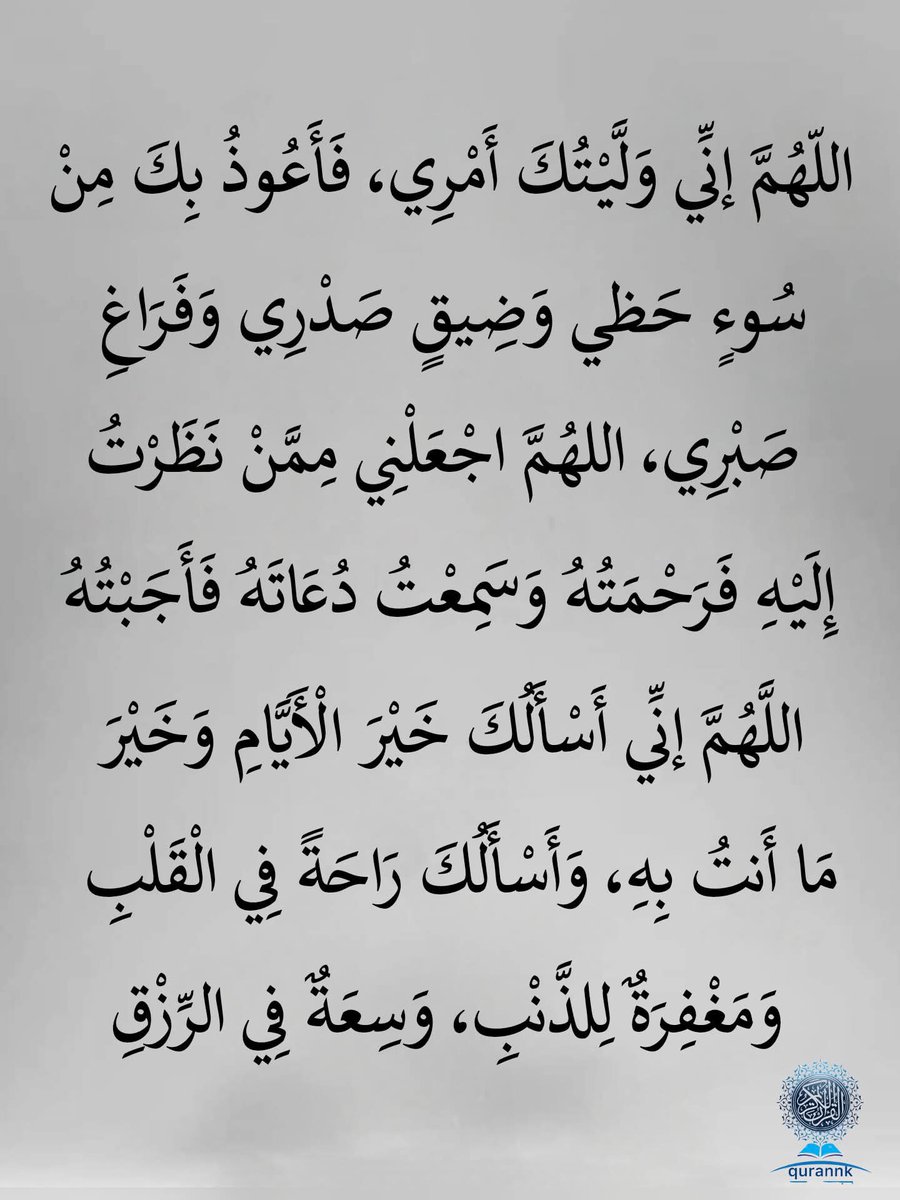 اللّهُمَّ إنِّي وَلَّيْتُكَ أَمْرِي، فَأَعُوذُ بِكَ مِنْ
سُوءٍ حَظي وَضِيقٍ صَدْرِي وَفَرَاغِ
صَبْرِي، اللهُمَّ اجْعَلْنِي مِمَّنْ نَظَرْتُ
إِلَيْهِ فَرَحْمَتُهُ وَسَمِعْتُ دُعَاتَهُ فَأَجَبْتُهُ
اللَّهُمَّ إنِّي أَسْأَلُكَ خَيْرَ الْأَيَّامِ وَخَيْرَ
مَا أَنتُ بِهِ، وَأَسْأَلُكَ رَاحَةً فِي الْقَلْبِ
وَمَغْفِرَةٌ لِلذَّنْبِ، وَسِعَةٌ فِي الرِّزْقِ
القرآن الكريم
qurannk